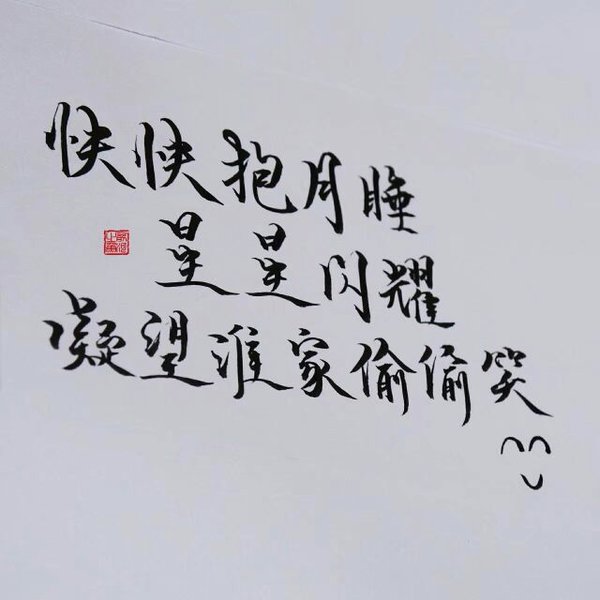 快快抱月睡
星星闪耀
凝望谁家偷偷笑